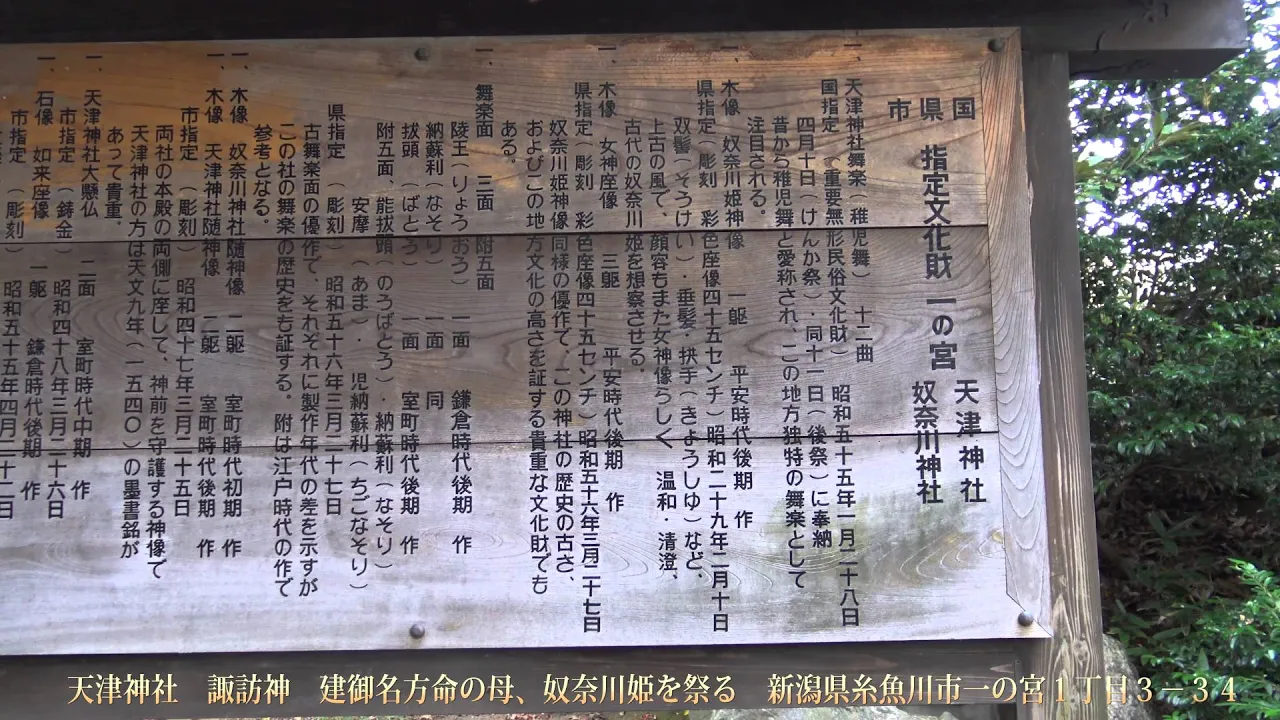 国
県 指定文化財 一の宮
市
天津神社
奴奈川神社
一、天津神社舞楽（稚児舞） 十二曲
国指定 （重要無形民俗文化財） 昭和五十五年一月二十八日
四月十日（けんか祭）・同十一日（後祭）に奉納
昔から稚児舞と愛称され、この地方独特の舞楽として
注目される。
一、木像 奴奈川姫神像 一軀 平安時代後期 作
県指定（彫刻 彩色座像四十五センチ）昭和二十九年二月十日
双髻（そうけい）・垂髪・拱手（きょうしゆ）など、
上古の風で、顔容もまた女神像らしく 温和・清澄、
古代の奴奈川姫を想察させる。
一、木像 女神座像 三軀 平安時代後期 作
県指定（彫刻 彩色座像四十五センチ）昭和五十六年三月二十七日
奴奈川姫神像同様の優作で、この神社の歴史の古さ、
およびこの地方文化の高さを証する貴重な文化財でも
ある。
一、舞楽面 三面 附五面
陵王（りょうおう） 一面 鎌倉時代後期 作
納蘇利（なそり） 一面 同
抜頭（ばとう） 一面 室町時代後期 作
附五面、能抜頭（のうばとう）・納蘇利（なそり）
安摩（あま）・ 児納蘇利（ちごなそり）
県指定 （彫刻） 昭和五十六年三月二十七日
古舞楽面の優作で、それぞれに製作年代の差を示すが
この社の舞楽の歴史を古証する。附は江戸時代の作で
参考となる。
一、木像 奴奈川神社随神像 二軀 室町時代初期 作
一、木像 天津神社随神像 二軀 室町時代後期 作
市指定 （彫刻） 昭和四十七年三月二十五日
両社の本殿の両側に座して、神前を守護する神像で
天津神社の方は天文九年（一五四〇）の墨書銘が
あって貴重。
一、天津神社大懸仏 二面 室町時代中期 作
市指定 （鋳金） 昭和四十八年三月二十六日
一、石像 如来座像 一軀 鎌倉時代後期 作
市指定 （彫刻） 昭和五十五年四月二十二日
天津神社 諏訪神 建御名方命の母、奴奈川姫を祭る 新潟県糸魚川市一の宮１丁目３－３４